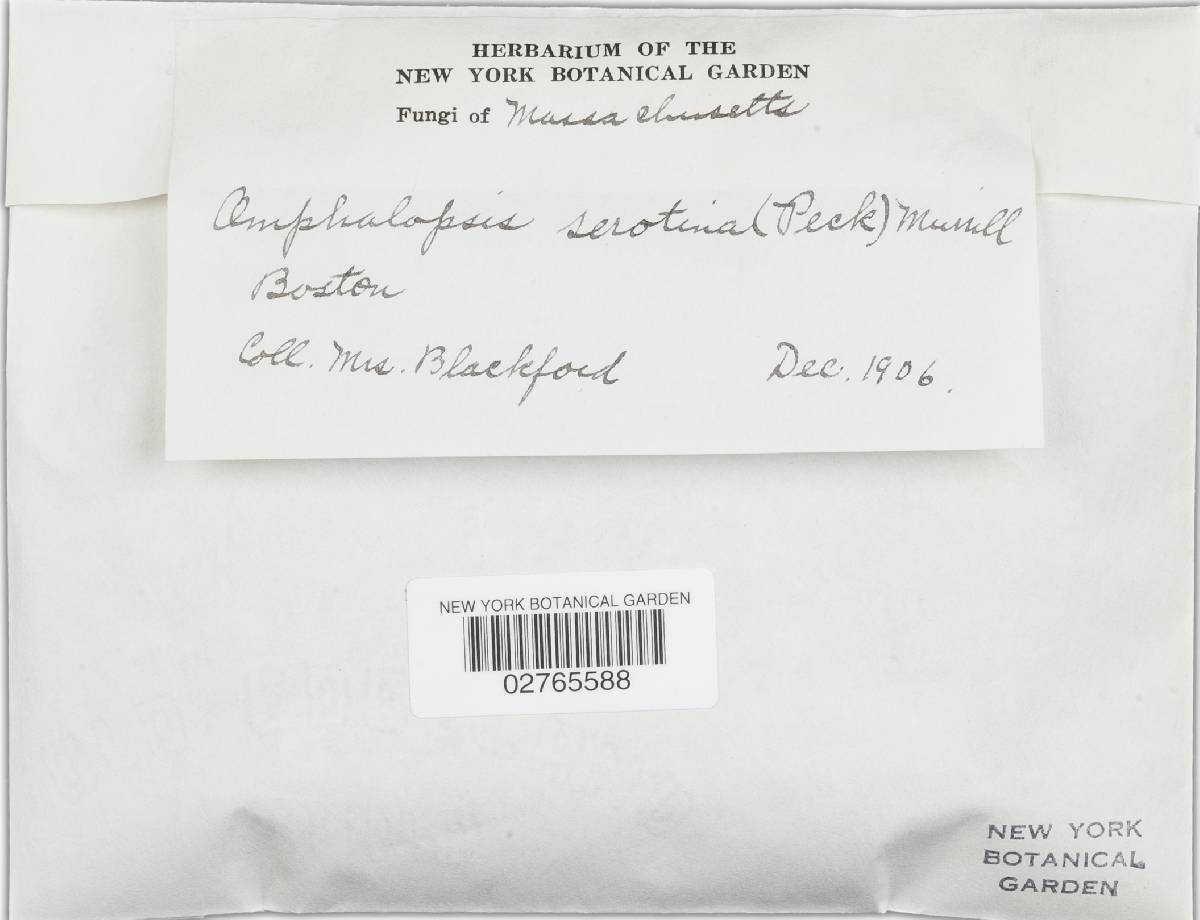 HERBARIUM OF THE
NEW YORK BOTANICAL GARDEN
Fungi of Massachusetts
Omphalopsis serotina (Peck) Murrill
Boston
Coll. Mrs. Blackford Dec. 1906.
NEW YORK BOTANICAL GARDEN
02765588
NEW YORK
BOTANICAL
GARDEN